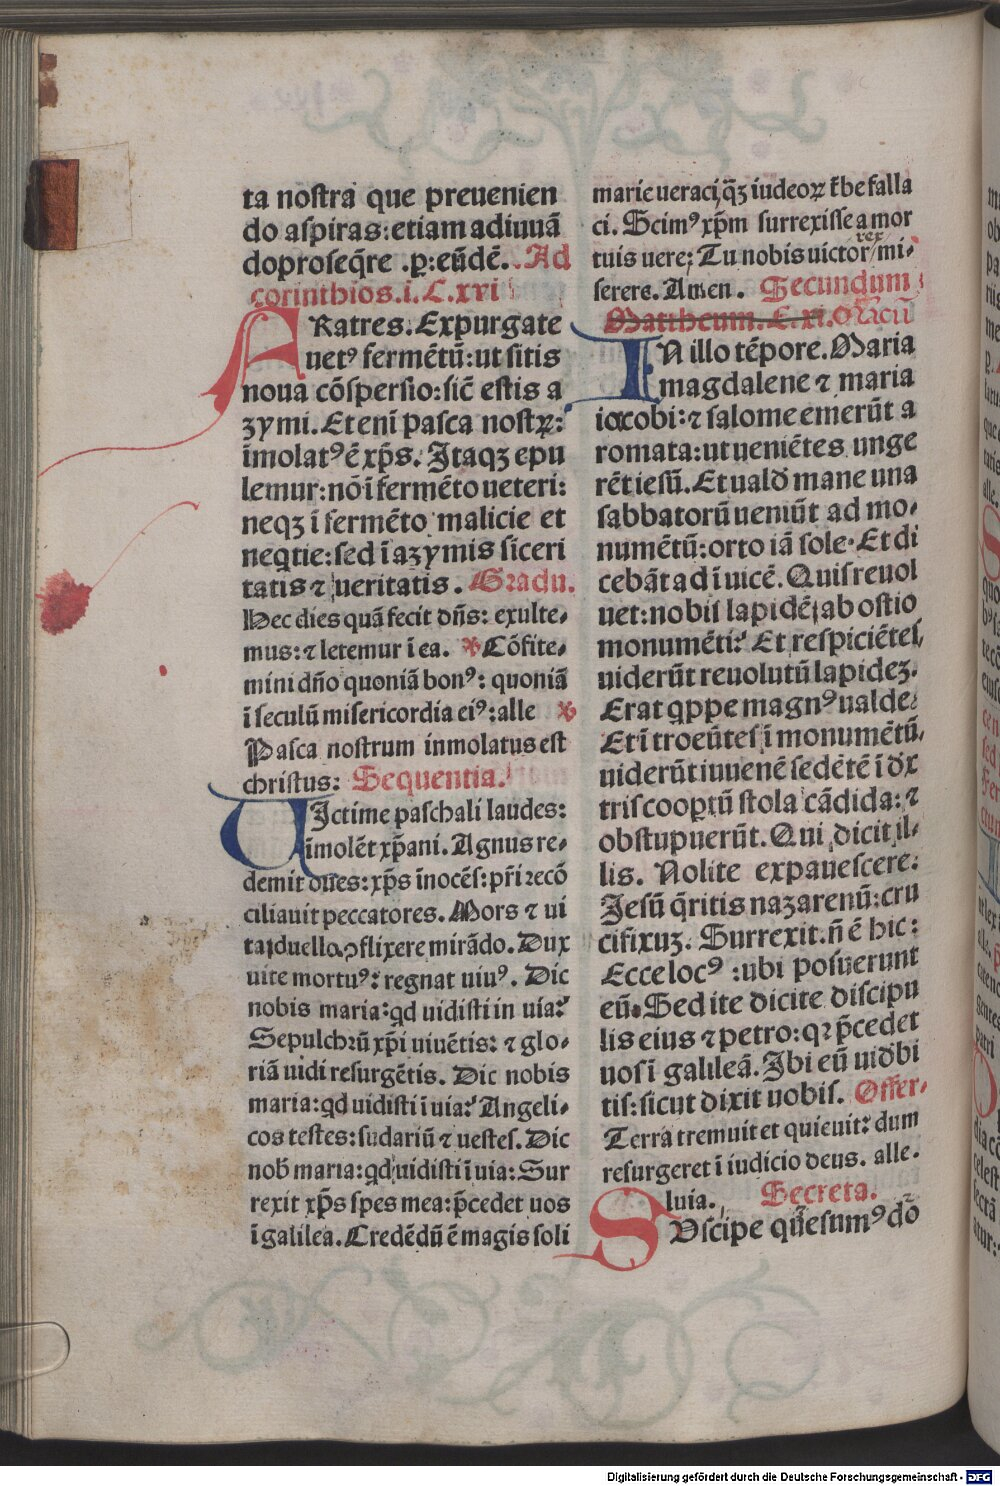 ta nostra que preuenien
do aspiras: etiam adiuuā
doproseq̄re .p: eūdē. Ad
corinthios.i. C.xvi
FRatres. Expurgate
uet⁹ fermētū: ut sitis
noua cōspersio: sic̄ estis a
zymi. Et eni̅ pasca nostꝝ:
īmolat⁹ ē xp̄s. Itaqꝫ epu
lemur: nō ī fermēto ueteri:
neqꝫ ī fermēto malicie et
neqtie: sed ī azymis siceri
tatis ⁊ ueritatis. Gradu.
Hec dies quā fecit dn̄s: exulte⸗
mus: ⁊ letemur ī ea. ℣ Cōfite⸗
mini dn̄o quoniā bon⁹: quoniā
ī seculū misericordia ei⁹: alle ℣
Pasca nostrum inmolatus est
christus: Sequentia.
UIctime paschali laudes:
īmolēt xp̄ani. Agnus re⸗
demit oues: xp̄s īnocēs: pr̄i recō
ciliauit peccatores. Mors ⁊ ui
ta duello ꝯflixere mirādo. Dux
uite mortu⁹: regnat uiu⁹. Dic
nobis maria: qd uidisti in uia?
Sepulchrū xp̄i uiuētis: ⁊ glo⸗
riā uidi resurgētis. Dic nobis
maria: qd uidisti ī uia? Angeli⸗
cos testes: sudariū ⁊ uestes. Dic
nob̄ maria: qd uidisti ī uia: Sur
rexit xp̄s spes mea: p̄cedet uos
ī galilea. Credēdū ē magis soli
marie ueraci, q̄ꝫ iudeoꝝ t̄be falla
ci. Scim⁹ xp̄m surrexisse a mor
tuis uere: Tu nobis uictor rex mi⸗
serere. Amen. Secundum
Mattheum. C. xi.
IN illo tēpore. Maria
magdalene ⁊ maria
iacobi: ⁊ salome emerūt a
romata: ut ueniētes unge
rēt iesū. Et uald̄ mane una
sabbatorū ueniūt ad mo⸗
numētū: orto iā sole. Et di
cebāt ad īuicē. Quis reuol
uet: nobis lapidē ab ostio
monumēti? Et respiciētes
uiderūt reuolutū lapideꝫ.
Erat qppe magn⁹ ualde.
Et ītroeūtes ī monumētū,
uiderūt iuuenē sedētē ī dx
tris cooptū stola cādida: ⁊
obstupuerūt. Qui dicit il⸗
lis. Nolite expauescere:
Jesū q̄ritis nazarenū: cru
cifixuꝫ. Surrexit. n̄ ē hic:
Ecce loc⁹ : ubi posuerunt
eū. Sed ite dicite discipu
lis eius ⁊ petro: qꝛ p̄cedet
uos ī galileā. Ibi eū uidbi
tis: sicut dixit uobis. Offer⸗
Terra tremuit et quieuit: dum
resurgeret ī iudicio deus. alle.
luia. Secreta.
SUscipe quesum⁹ dō
Digitalisierung gefördert durch die Deutsche Forschungsgemeinschaft - DFG